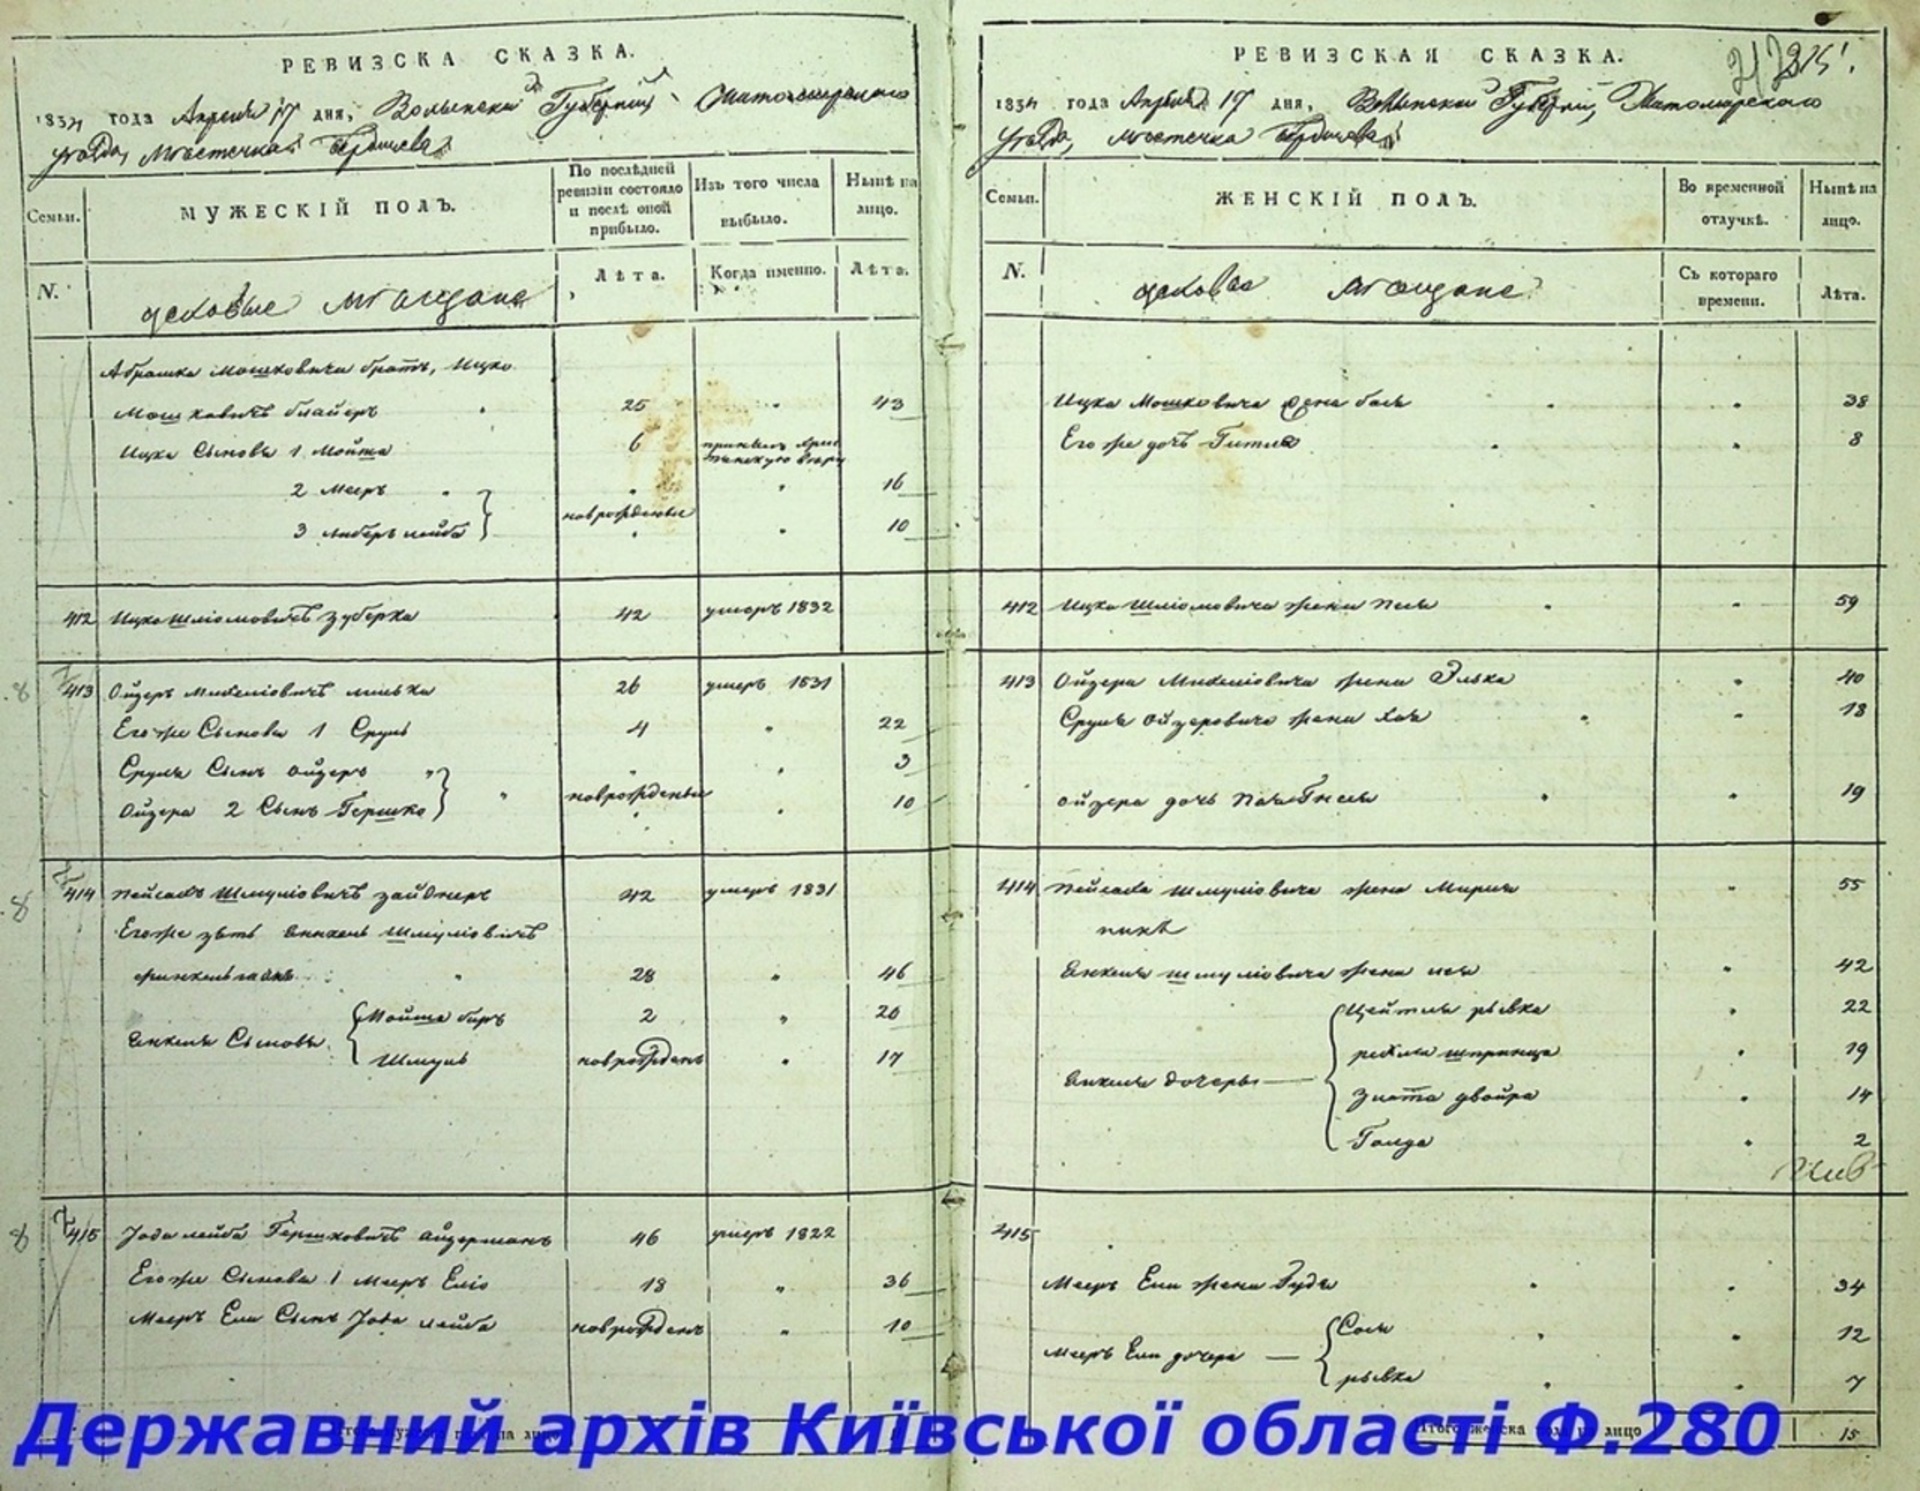 РЕВИЗСКА СКАЗКА.
1834 года Апреля 17 дня, Волынской Губернии, Житомирского
уезда, местечка Бердичева
Семьи. МУЖЕСКІЙ ПОЛЪ. По послѣдней ревизіи состояло и послѣ оной прибыло. Изъ того числа выбыло. Нынѣ на лицо.
N. цеховые мещане Лѣта. Когда именно. Лѣта.
Абрамка Мошковича братъ, Ицко
Мошковичъ 25 43
Ицка Сыновья 1 Мойша 6
2 Мееръ 16
новрожденные
3 Либеръ лейба 10
412 Ицко Шліомовичъ Зуберка 42 умеръ 1832
413 Ойзеръ 26 умеръ 1831
Егоже Сыновья 1 Сруль 4 22
Сруля Сынъ Ойзеръ 3
новрожденные
Ойзера 2 Сынъ Гершко 10
414 Пейсахъ Шмуліовичъ Зайднеръ 42 умеръ 1831
Егоже зять Янкель Шмуліовичъ
28 46
Янкеля Сыновья Мойша беръ 2 20
Шмуль новрожденъ 17
415 Іова лейба Гершковичъ Айзерманъ 46 умеръ 1822
Егоже Сыновья 1 Мееръ Еліо 18 36
Мееръ Ели Сынъ Іова лейба новрожденъ 10
РЕВИЗСКАЯ СКАЗКА.
1834 года Апреля 17 дня, Волынской Губернии, Житомирского
уезда, местечка Бердичева
Семьи. ЖЕНСКІЙ ПОЛЪ. Во временной отлучкѣ. Нынѣ на лицо.
N. цеховые мещане Съ котораго времени. Лѣта.
Ицка Мошковича жена бася 38
Его же дочь Гитля 8
412 Ицка Шліомовича жена Песя 59
413 Ойзера жена Элька 40
Сруля Ойзеровича жена Хая 18
Ойзера дочь 19
414 Пейсаха Шмуліовича жена Мирля 55
Янкеля Шмуліовича жена лея 42
Цейтля рывка 22
рехля шпринца 19
Янкеля дочеры
Злота двойра 14
Голда 2
415
Мееръ Ели жена Гудя 34
Сося 12
Мееръ Ели дочери
рывка 7
Итого женска пола на лицо 15
Державний архів Київської області Ф.280